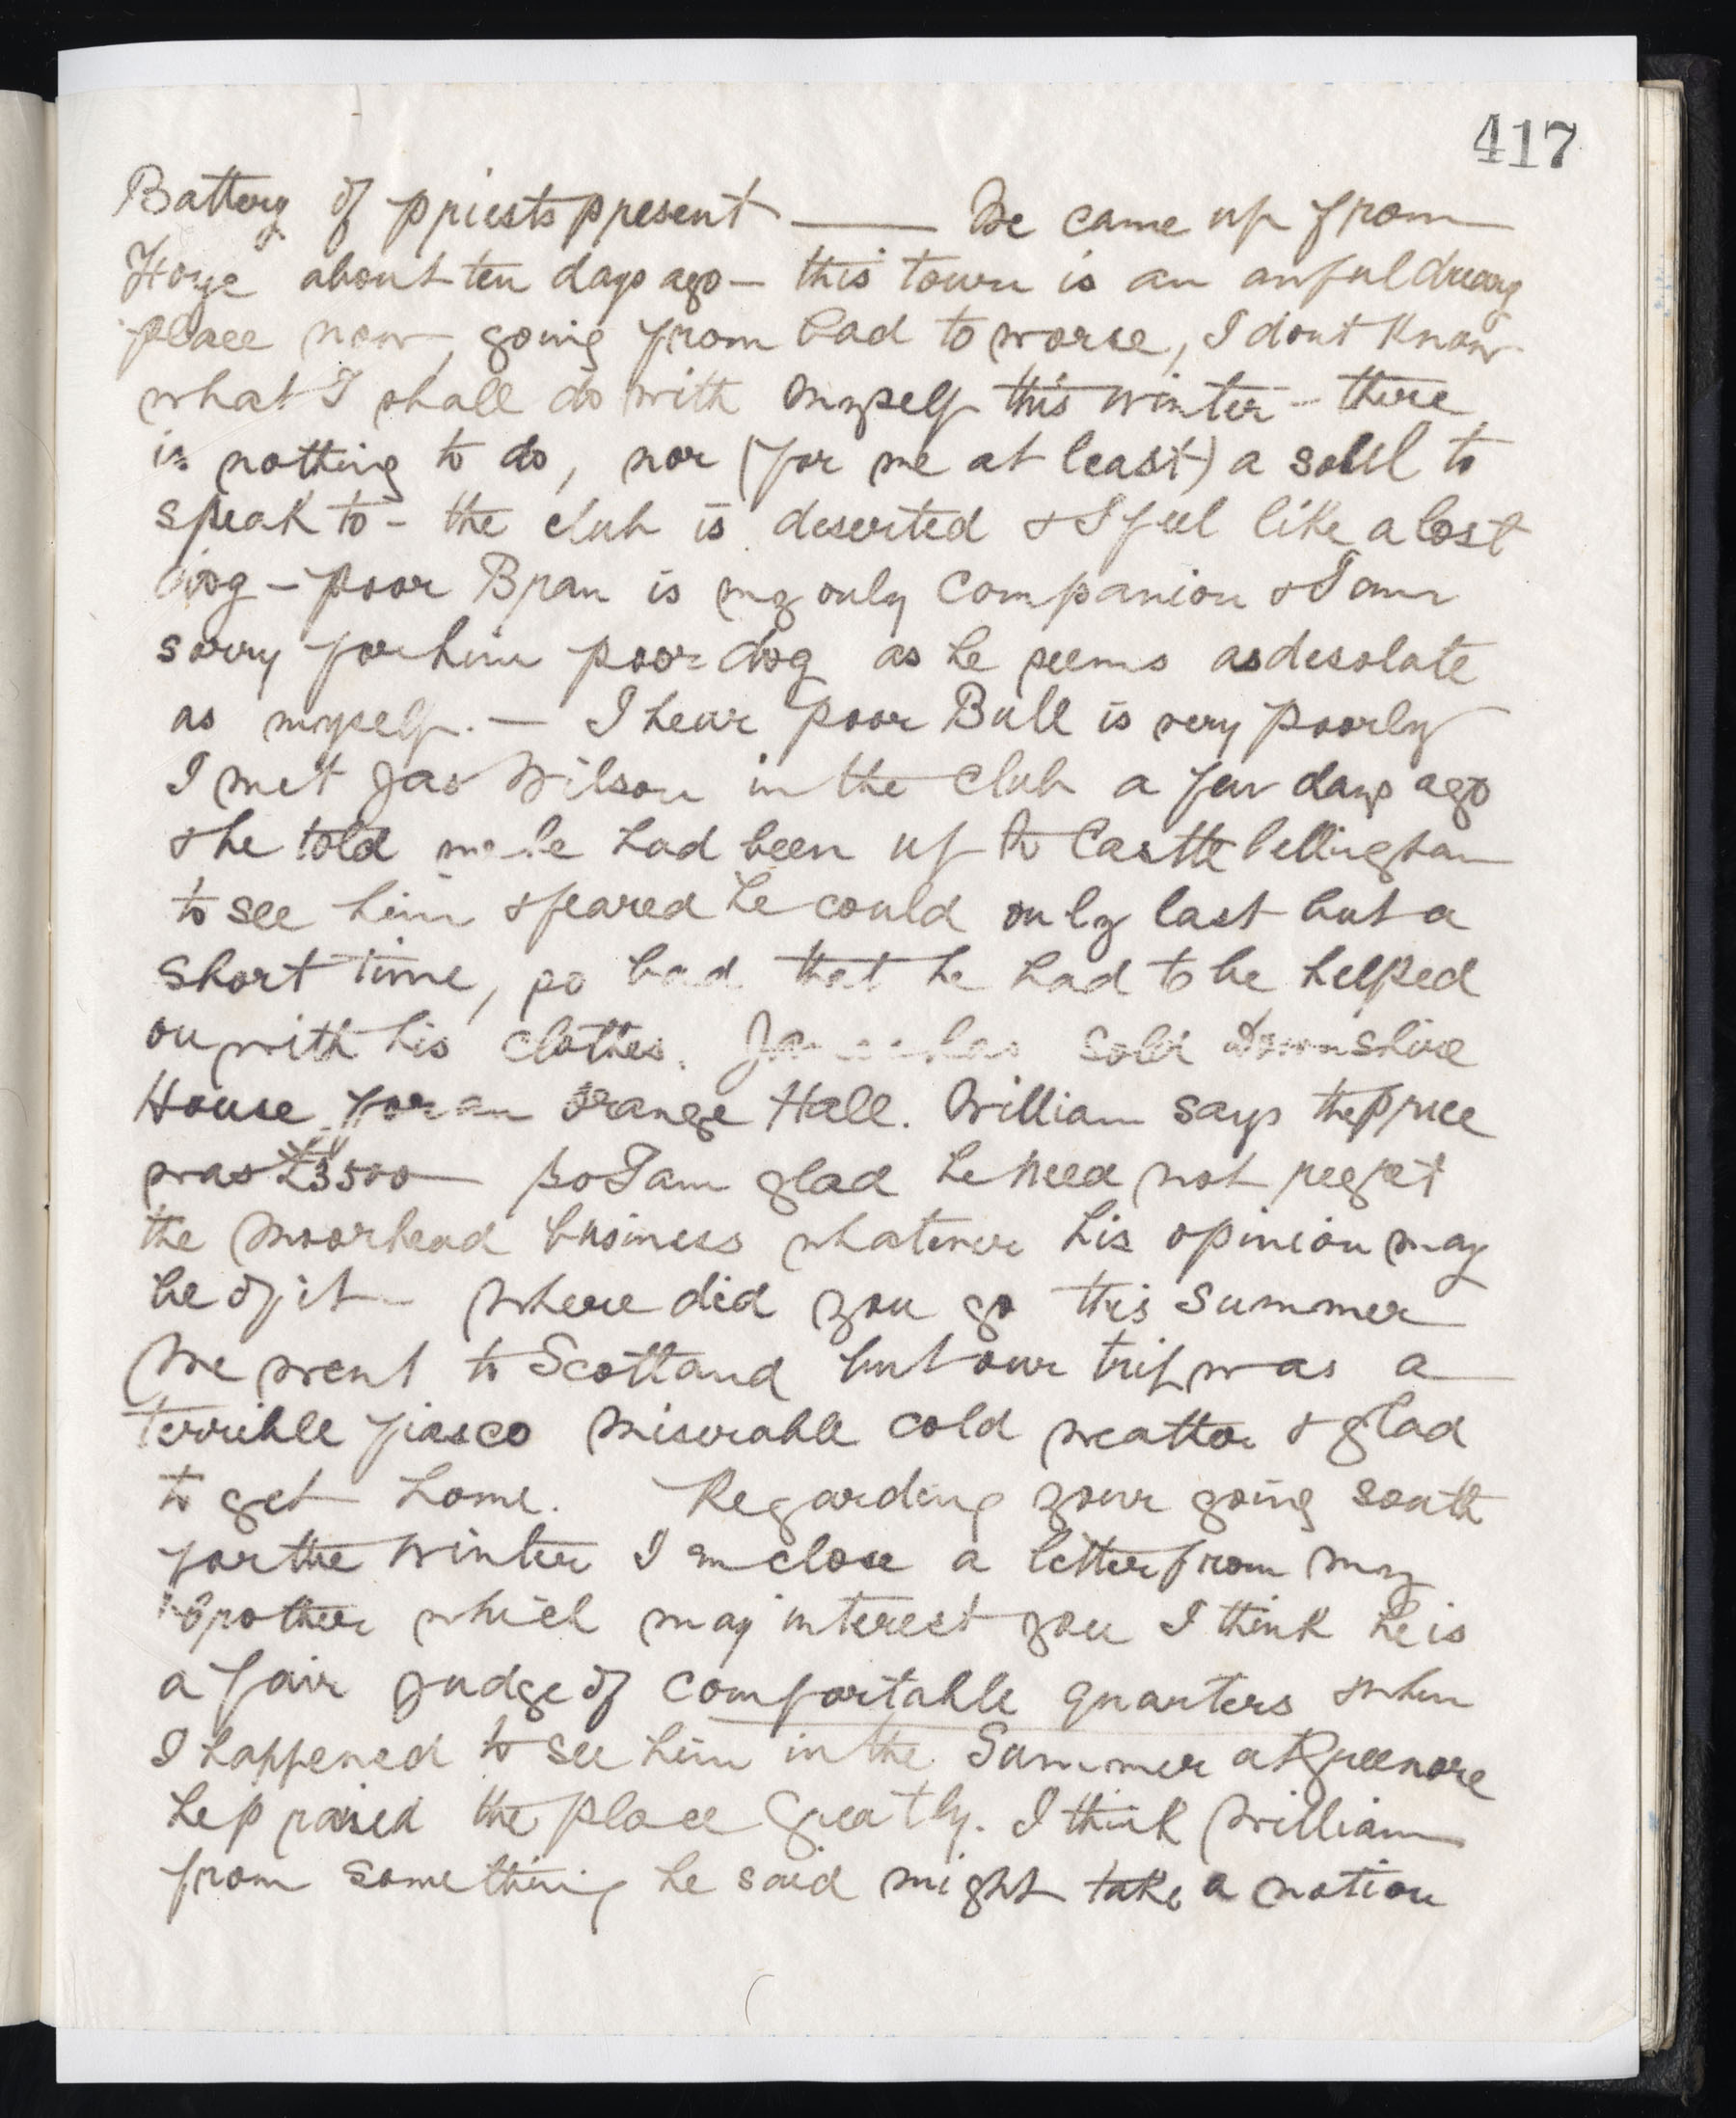 417
Battery of priests present — We came up from
about ten days ago — this town is an awful dreary
place now, going from bad to worse, I dont know
what I shall do with myself this winter - there
is nothing to do, nor (for me at least) a soul to
speak to - the club is deserted & I feel like a lost
dog - poor Bran is my only companion & I am
sorry for him poor dog as he seems as desolate
as myself. — I hear poor Bull is very poorly
I met Jas Wilson in the club a few days ago
& he told me he had been up to Castle bellingham
to see him & feared he could only last but a
short time, so bad that he had to be helped
on with his clothes. has sold Downshire
House for an Orange Hall. William says the price
was £3500 — so I am glad he need not regret
the Moorhead business whatever his opinion may
be of it — Where did you go this Summer
We went to Scotland but our trip was a
terrible fiasco miserable cold weather & glad
to get home. Regarding your going south
for the winter I enclose a letter from my
Brother which may interest you I think he is
a fair judge of comfortable quarters & when
I happened to see him in the Summer at Greenore
he praised the place greatly. I think William
from something he said might take a notion